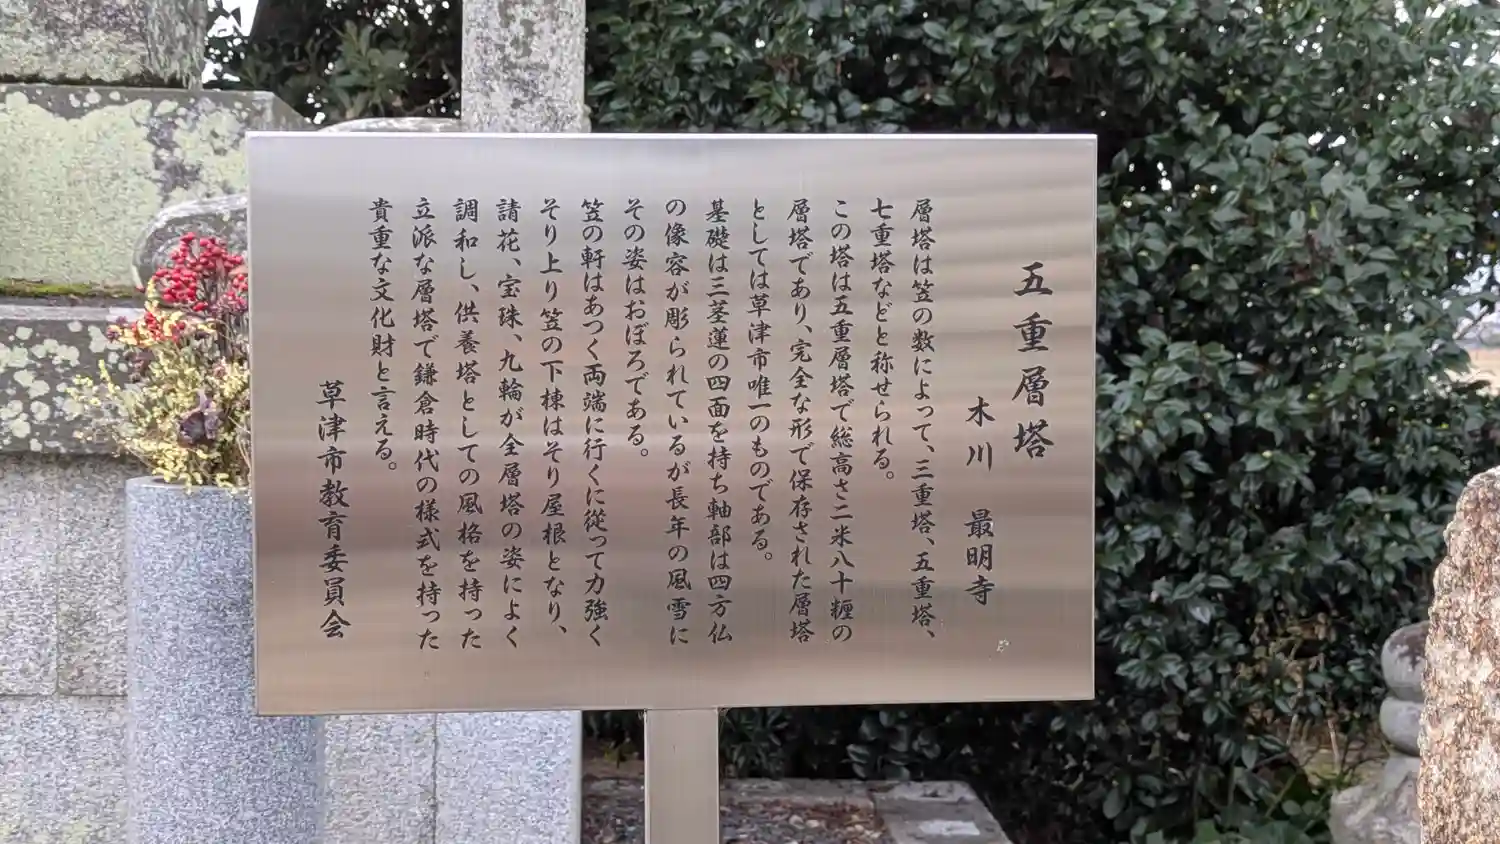 五重層塔
木川 最明寺
層塔は笠の数によって、三重塔、五重塔、
七重塔などと称せられる。
この塔は五重層塔で総高さ二米八十糎の
層塔であり、完全な形で保存された層塔
としては草津市唯一のものである。
基礎は三茎蓮の四面を持ち軸部は四方仏
の像容が彫られているが長年の風雪に
その姿はおぼろである。
笠の軒はあつく両端に行くに従って力強く
そり上り笠の下棟はそり屋根となり、
請花、宝珠、九輪が全層塔の姿によく
調和し、供養塔としての風格を持った
立派な層塔で鎌倉時代の様式を持った
貴重な文化財と言える。
草津市教育委員会